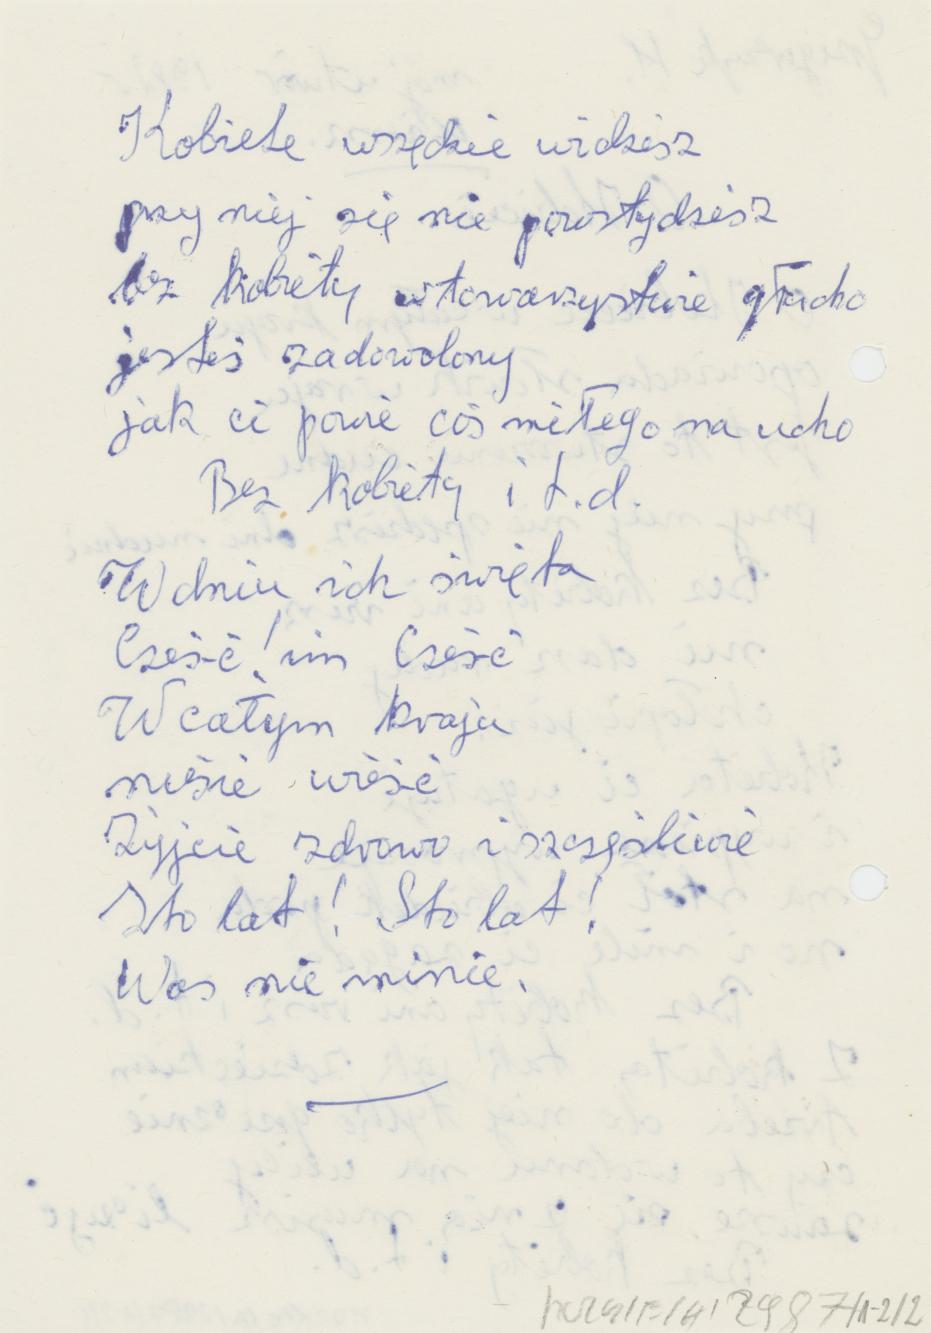 Kobiete wszędzie widzisz
przy niej się nie powstydzisz
bez kobiety wtowarzystwie głucho
jesteś zadowolony
jak ci powie coś miłego na ucho
Bez kobiety i t.d.
Wdniu ich święta
Cześć! im Cześć
Wcałym kraju
nieście wieść
Żyjcie zdrowo i szczęśliwie
Sto lat! Sto lat!
Was nie minie.
2987/1-2/2